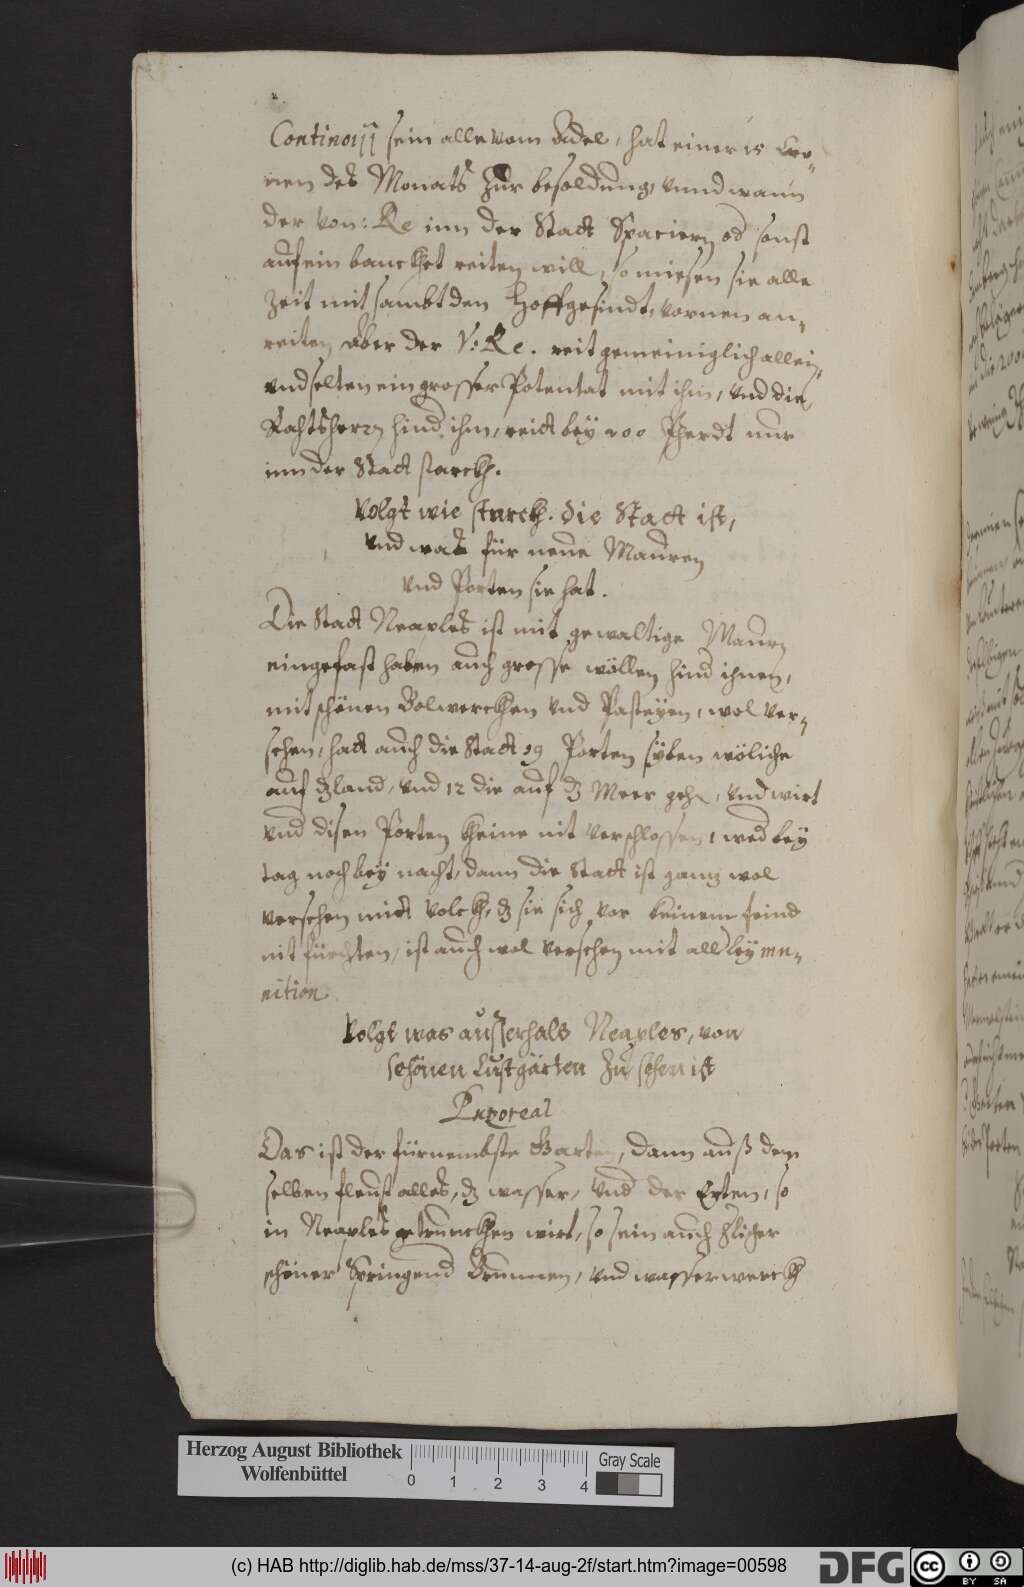 Continouij sein alle vom Adel, hat einer 15 Cro-
nen des Monats zur besoldung, vnnd wann
der Von: Re inn der Statt Spaciern od sonst
auf ein banckhet reiten will, so miesen sie alle
Zeit mit sambt den Hoffgesindt, vornen an-
reiten, Aber der V: Re. reit gemeiniglich allein,
vnd selten ein grosser Potentat mit ihm, vnd die
Rahtsherrn hind ihm, reitt bey 200 Pferdt nur
inn der Statt starckh.
Volgt wie starckh. die Statt ist,
Vnd was für neue Mauren
vnd Porten sie hat.
Die Statt Neaples ist mit gewaltige Maurn
eingefast haben auch grosse wöllen hind ihnen,
mit schönen Bolwerckhen vnd Pasteyen, wol ver-
sehen, hatt auch die Statt 19 Porten syben wöliche
auf dz land, vnd 12 die auf dz Meer gehn, vnd wirt
vnd disen Porten kheine nit verschlossen, wed bey
tag noch bey nacht, dann die Statt ist gantz wol
versehen mitt Volckh, dz sie sich vor keinem feind
nit fürchten, ist auch wol versehen mit allerley mu-
nition
Volgt was ausserhalb Neaples, von
schönen Lustgärten Zu sehen ist
Das ist der fürnembste Garten, dann auß dem
selben fleust alles, dz wasser, vnd der Erten, so
in Neaples getrunckhen wirt, so sein auch
schöner Springend Brunnen, vnd wasserwerckh
Herzog August Bibliothek
Wolfenbüttel
0 1 2 3 4
Gray Scale
(c) HAB http://diglib.hab.de/mss/37-14-aug-2f/start.htm?image=00598
DFG
cc BY SA